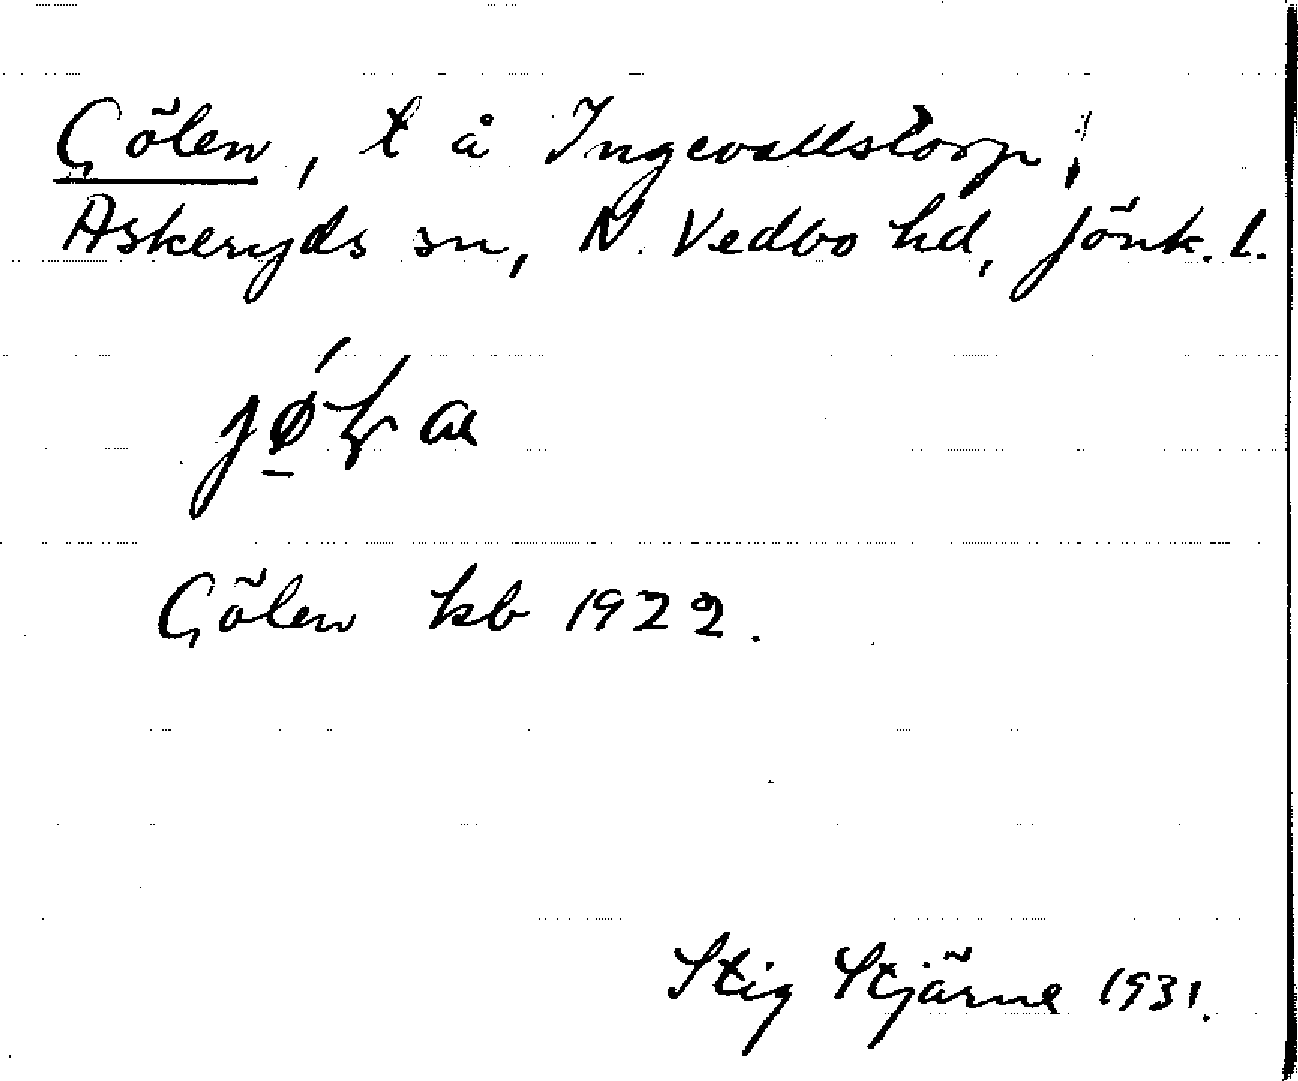 Gölen, t å Ingevallstorp,
Askeryds sn, N. Vedbo hd, Jönk. l.
Gölen kb 1922.
Stig Stjärne 1931.